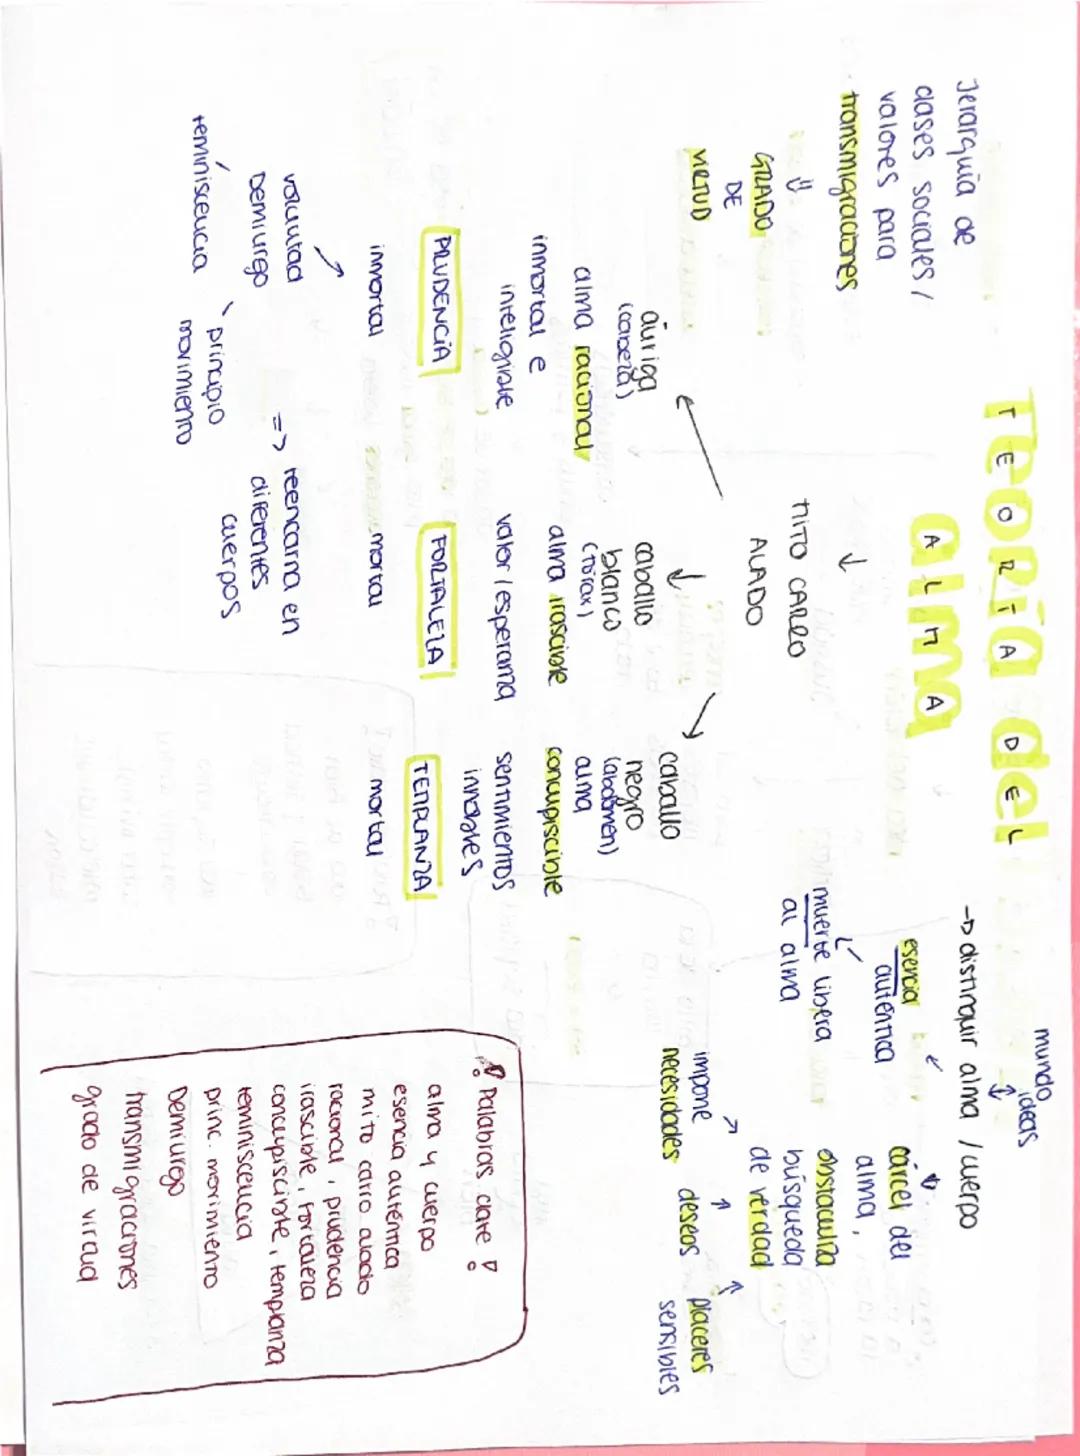 TEORÍA DEL
ALMA
Jerarquía de
clases sociales /
valores para
transmigraciones
GRADO
DE
VIRTUD
MITO CARRO
ALADO
auriga
(cabeza)
alma racional
inmortal e
inteligible
PRUDENCIA
inmortal
voluntad
Demiurgo
reminiscencia
principio
movimiento
=> reencarna en
diferentes
cuerpos
caballo
blanco
(tórax)
alma irascible
valor / esperama
FORTALEZA
mortal
caballo
negro
(abdomen)
alma
concupiscible
sentimientos
innobles
TEMPLANZA
mortal
mundo
ideas
→ distinguir alma / cuerpo
esencia
auténtica
muerte libera
al alma
cárcel del
alma,
obstaculiza
búsqueda
de verdad
impone
necesidades
deseos
placeres
sensibles
¡ Palabras clave !
alma y cuerpo
esencia auténtica
mito carro alado
racional, prudencia
irascible, fortaleza
concupiscible, templanza
reminiscencia
princ. movimiento
Demiurgo
transmigraciones
grado de virtud